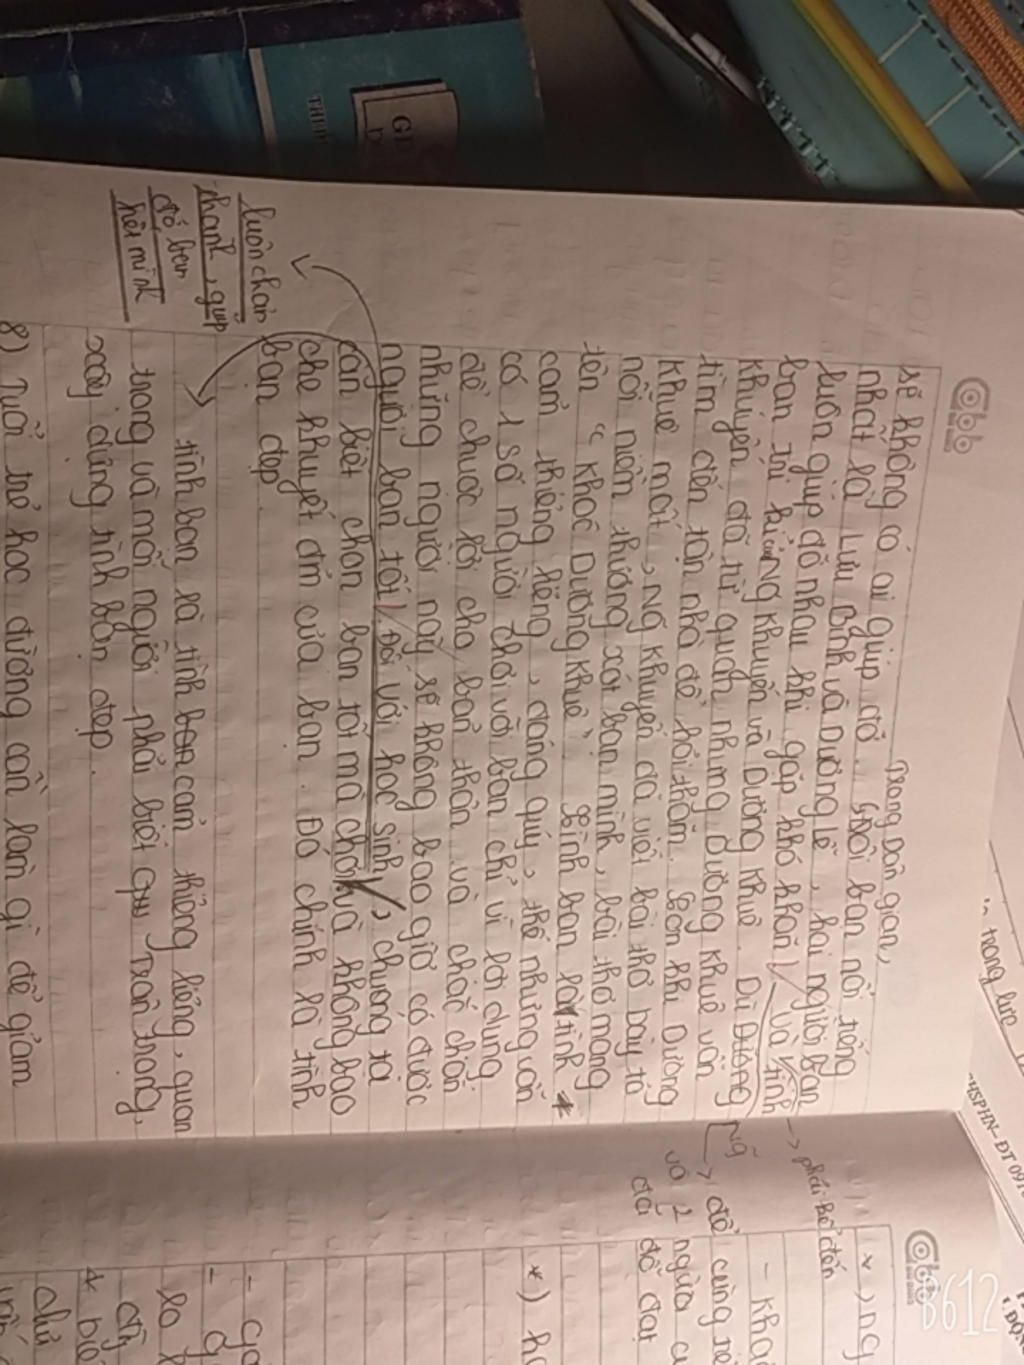 Trong Dân gian,
sẽ không có ai giúp đỡ. Đôi bạn nổi tiếng
nhất là Lưu Bình và Dương Lễ, hai người bạn
luôn giúp đỡ nhau khi gặp khó khăn, và tình
bạn tri kỉ Khuyến và Dương Khuê. Dù Dương
Khuyến đã từ quan nhưng Dương Khuê vẫn
tìm đến tận nhà để hỏi thăm. Sau khi Dương
Khuê mất, Ng Khuyến đã viết bài thơ bày tỏ
nỗi niềm thương xót bạn mình, bài thơ mang
tên "Khóc Dương Khuê". Tình bạn là tình
cảm thiêng liêng, đáng quý, thế nhưng vẫn
có 1 số người chơi với bạn chỉ vì lợi dụng
để chuộc lợi cho bản thân và chắc chắn
những người này sẽ không bao giờ có được
người bạn tốt. Đối với học sinh, chúng ta
cần biết chọn bạn tốt mà chơi và không bao
che khuyết đ'm của bạn. Đó chính là tình
bạn đẹp.
tình bạn là tình cảm thiêng liêng, quan
trọng và mỗi người phải biết trân trọng,
xây dựng tình bạn đẹp.
8) Tuổi trẻ học đường cần làm gì để giảm
luôn chân
thành, giúp
đỡ bạn
hết mình
→ phải kể đến
Ng
→ để cùng
và 2 người
đã đỗ đạt
- khoa
*) h
trong lực
ĐHSPHN - ĐT 091
abb
abb
GD
B612